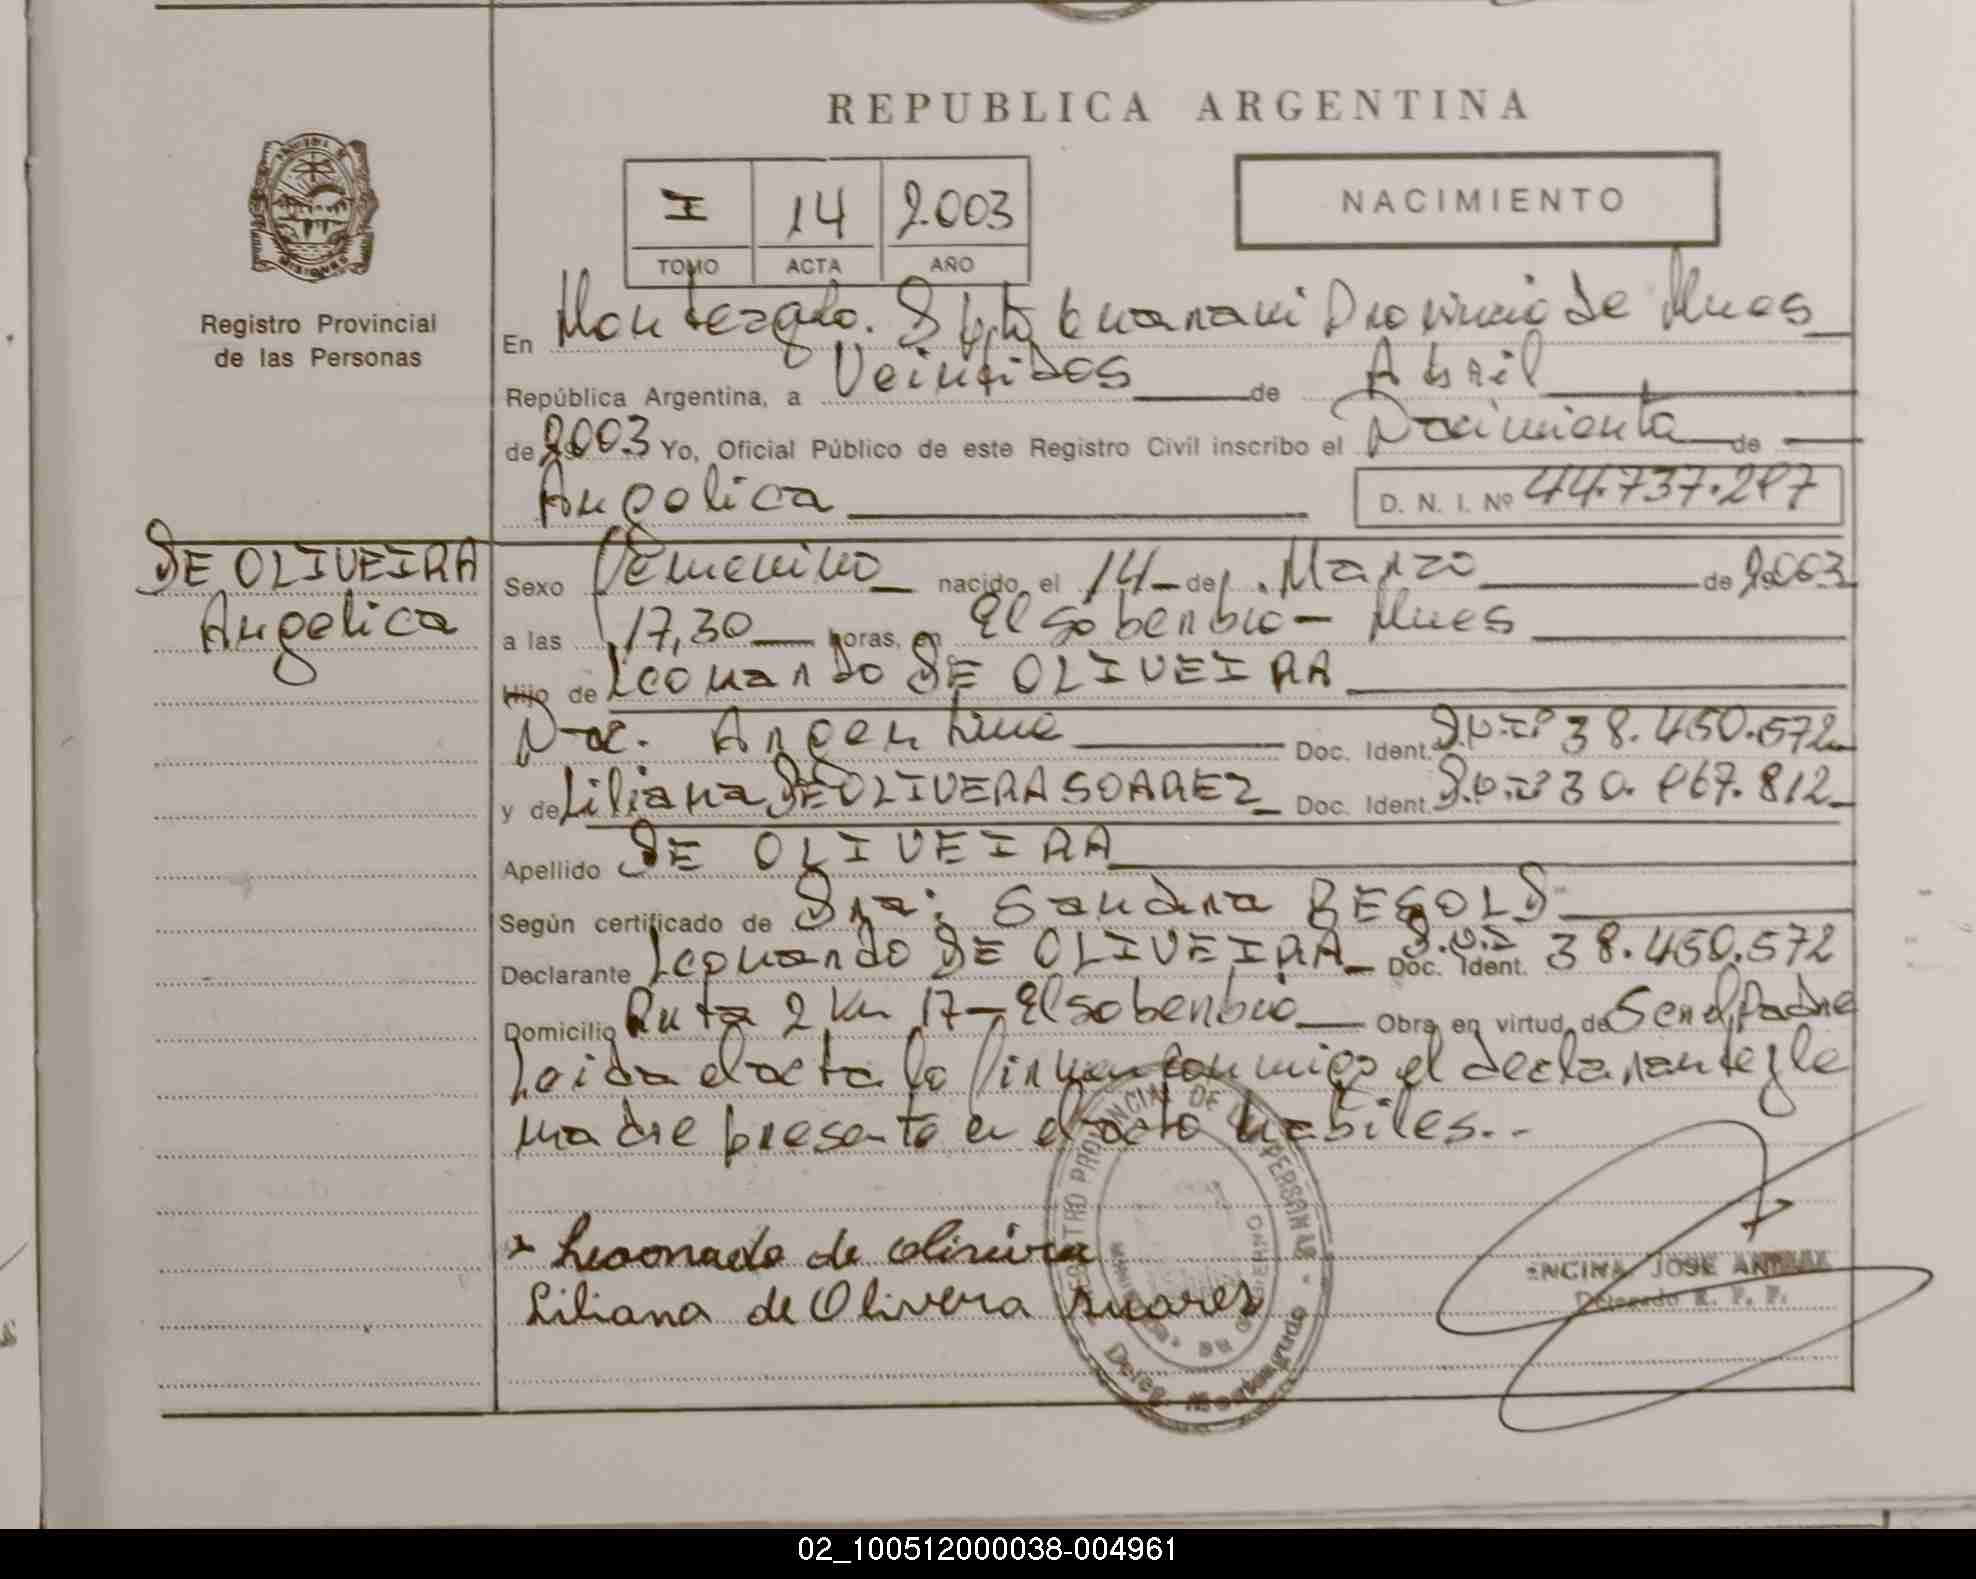 REPUBLICA ARGENTINA
I 14 2.003
TOMO ACTA AÑO
NACIMIENTO
MISIONES
Registro Provincial
de las Personas
En Monteagudo. Dpto Guarani Provincia de Mnes
República Argentina, a Veintidos de Abril
de 2003 Yo, Oficial Público de este Registro Civil inscribo el Nacimiento de
Angelica
D. N. I. Nº 44.737.297
DE OLIVEIRA
Angelica
Sexo Femenino nacido el 14 de Marzo de 2.003
a las 17,30 horas, en El Soberbio - Mnes
Hijo de Leonardo DE OLIVEIRA
Nac. Argentina Doc. Ident. D.N.I. 38.450.572
y de Liliana DE OLIVERA SOAREZ Doc. Ident. D.N.I. 30. 967.812
Apellido DE OLIVEIRA
Según certificado de Sra: Sandra BEGOLD
Declarante Leonardo DE OLIVEIRA Doc. Ident. D.N.I 38.450.572
Domicilio Ruta 2 Km 17 - El Soberbio Obra en virtud de Ser el Padre
Leida el acta la firman conmigo el declarante y la
madre presente en el acto habiles. -
Leonardo de Oliveira
Liliana de Olivera Suares
REGISTRO PROVINCIAL DE LAS PERSONAS
MINISTERIO DE GOBIERNO
Deleg. Monteagudo
ENCINA JOSE
Delegado R. P. P.
02_100512000038-004961